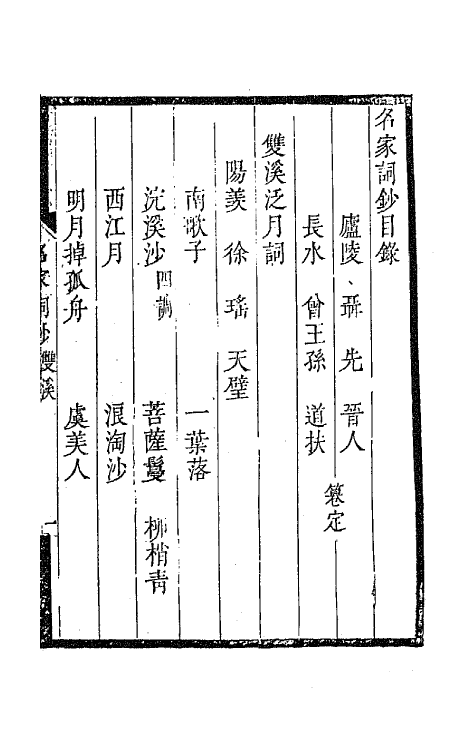 名家詞鈔目錄
廬陵 聶先 晉人
長水 曾王孫 道扶
篹定
雙溪泛月詞
陽羨 徐瑤 天璧
南歌子 一葉落
浣溪沙四調 菩薩鬘 柳梢青
西江月 浪淘沙
明月掉孤舟 虞美人
名家詞鈔 雙溪 一